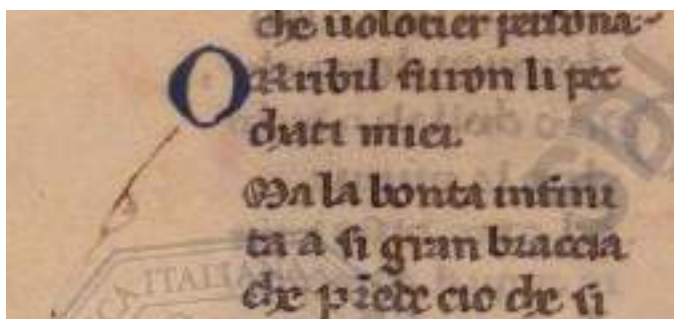 che uolotier perdona
Orribil furon li pec
chati miei.
Ma la bonta infini
ta a si gran braccia
ITALIANA
che prēde cio che si